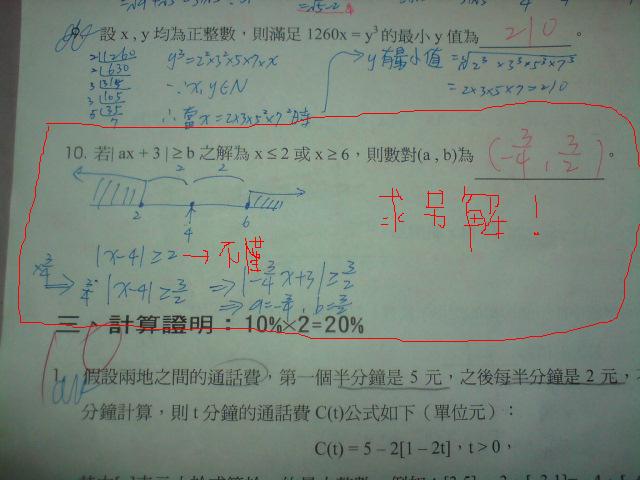 設 x , y 均為正整數，則滿足 1260x = y³ 的最小 y 值為 210 。
2|1260
2|630
3|315
3|105
5|35
7
y³=2²×3²×5×7×x
∵x,y∈N
∴當x=2×3×5²×7²時
y有最小值=∛2³×3³×5³×7³
=2×3×5×7=210
10. 若| ax + 3 | ≥ b 之解為 x ≤ 2 或 x ≥ 6，則數對(a , b)為 (-3/4, 3/2) 。
2 2
2 4 6
求另解！
|x-4|≥2 → 不懂
×3/4
⇒ 3/4·|x-4|≥3/2 ⇒ |-3/4x+3|≥3/2
⇒ a=-3/4, b=3/2
三、計算證明：10%×2=20%
1. 假設兩地之間的通話費，第一個半分鐘是 5 元，之後每半分鐘是 2 元，
分鐘計算，則 t 分鐘的通話費 C(t)公式如下（單位元）：
C(t) = 5 – 2[1 – 2t]，t > 0，